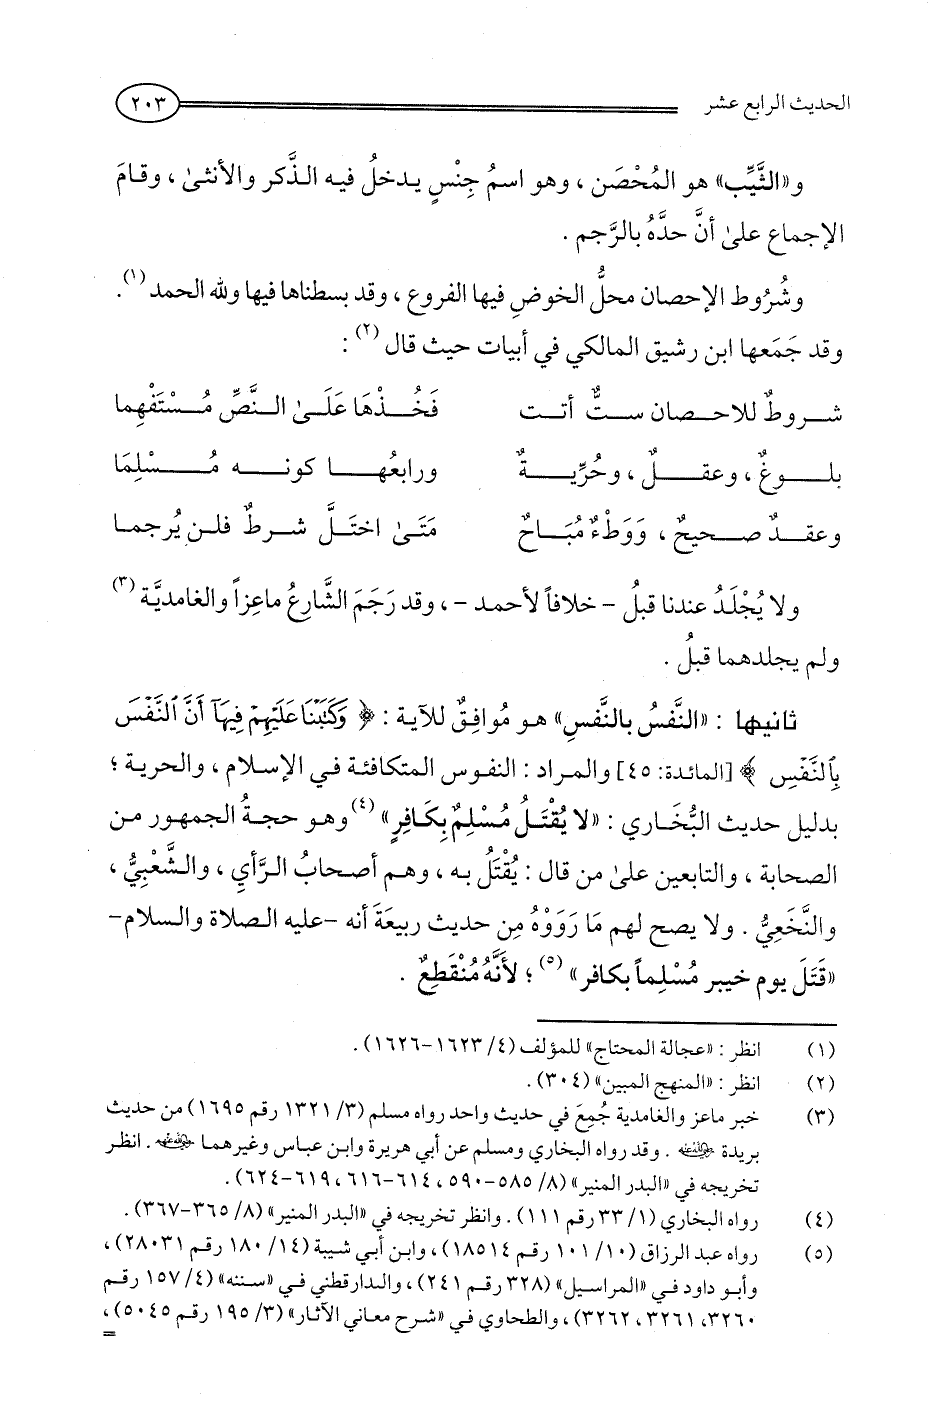 الحديث الرابع عشر ٢٠٣
و«الثَّيِّب» هو المُحْصَن ، وهو اسمُ جِنْسٍ يدخلُ فيه الذَّكر والأنثىٰ ، وقامَ
الإجماع علىٰ أنَّ حدَّهُ بالرَّجم .
وشُرُوط الإحصان محلُّ الخوضِ فيها الفروع ، وقد بسطناها فيها ولله الحمد (١).
وقد جَمَعها ابن رشيق المالكي في أبيات حيث قال (٢) :
شروطٌ للاحصان ستٌّ أتت فَخُذْهَا عَلَىٰ النَّصِّ مُسْتَفْهِما
بلوغٌ ، وعقلٌ ، وحُرِّيةٌ ورابعُها كونه مُسْلِمَا
وعقدٌ صحيحٌ ، وَوَطْءٌ مُبَاحٌ مَتَىٰ اختَلَّ شرطٌ فلن يُرجما
ولا يُجْلَدُ عندنا قبلُ - خلافاً لأحمد - ، وقد رَجَمَ الشَّارعُ ماعِزاً والغامديَّة (٣)
ولم يجلدهما قبلُ .
ثانيها : «النَّفسُ بالنَّفسِ» هو مُوافِقٌ للآية : ﴿ وَكَتَبْنَا عَلَيْهِمْ فِيهَآ أَنَّ ٱلنَّفْسَ
بِٱلنَّفْسِ ﴾ [المائدة: ٤٥] والمراد : النفوس المتكافئة في الإسلام ، والحرية ؛
بدليل حديث البُّخاري : «لا يُقْتَلُ مُسْلِمٌ بِكَافِرٍ» (٤) وهو حجةُ الجمهور من
الصحابة ، والتابعين علىٰ من قال : يُقْتَلُ به ، وهم أصحابُ الرَّأي ، والشَّعْبِيُّ ،
والنَّخَعِيُّ . ولا يصح لهم مَا رَوَوْهُ مِن حديث ربيعَةَ أنه -عليه الصلاة والسلام-
«قَتَلَ يوم خيبر مُسْلِماً بكافر» (٥) ؛ لأنَّهُ مُنْقَطِعٌ .
(١) انظر : «عجالة المحتاج» للمؤلف (٤/ ١٦٢٣-١٦٢٦).
(٢) انظر : «المنهج المبين» (٣٠٤).
(٣) خبر ماعز والغامدية جُمِعَ في حديث واحد رواه مسلم (٣/ ١٣٢١ رقم ١٦٩٥) من حديث
بريدة رضي الله عنه . وقد رواه البخاري ومسلم عن أبي هريرة وابن عباس وغيرهما رضي الله عنهم . انظر
تخريجه في «البدر المنير» (٨/ ٥٨٥-٥٩٠، ٦١٤-٦١٦، ٦١٩-٦٢٤).
(٤) رواه البخاري (١/ ٣٣ رقم ١١١). وانظر تخريجه في «البدر المنير» (٨/ ٣٦٥-٣٦٧).
(٥) رواه عبد الرزاق (١٠/ ١٠١ رقم ١٨٥١٤)، وابن أبي شيبة (١٤/ ١٨٠ رقم ٢٨٠٣١)،
وأبو داود في «المراسيل» (٣٢٨ رقم ٢٤١)، والدارقطني في «سننه» (٤/ ١٥٧ رقم
٣٢٦٠، ٣٢٦١، ٣٢٦٢)، والطحاوي في «شرح معاني الآثار» (٣/ ١٩٥ رقم ٥٠٤٥)،
=